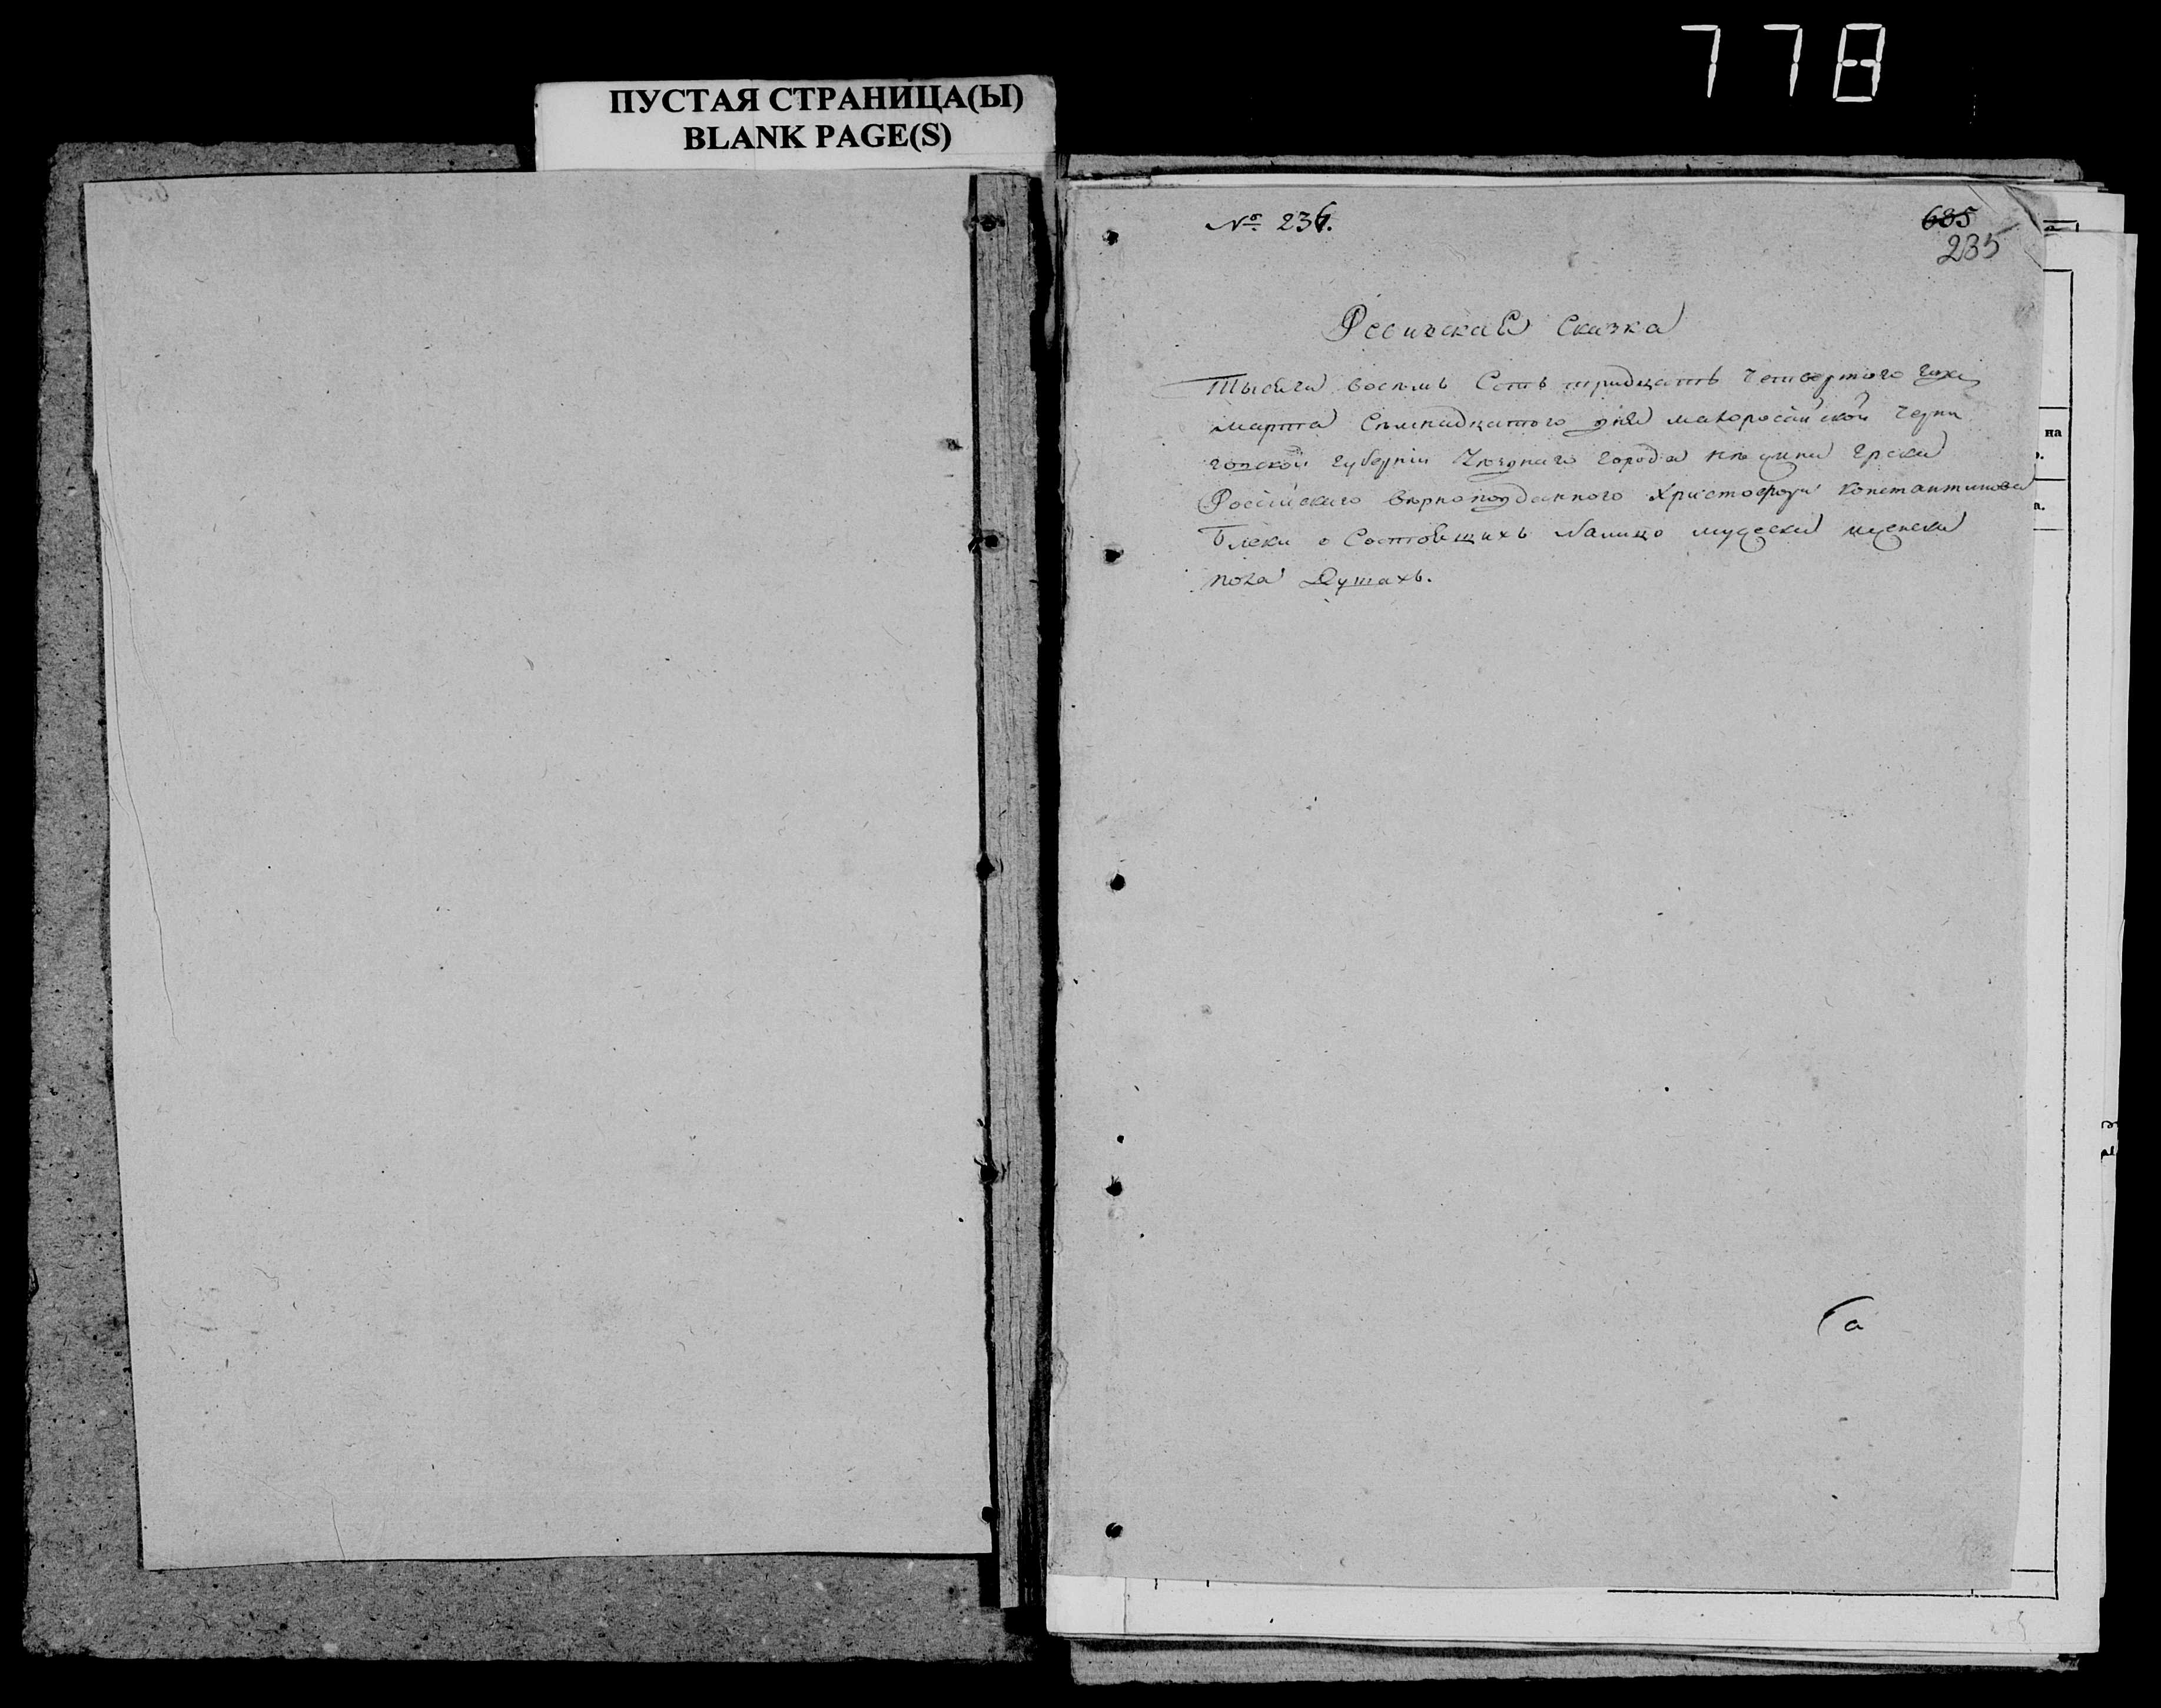 778
ПУСТАЯ СТРАНИЦА(Ы)
BLANK PAGE(S)
№ 236.
685
235
Ревизская Сказка
Тысяча восемь Сотъ тридцать Четвертого года
марта Семнадцатого дня малоросійской Черни
говской губерніи Уезднаго города Нежина Грека
Россійскаго вернопозданного Христофора Константинова
о Состоящихъ Налицо мужеска
пола Душахъ.
на
а.